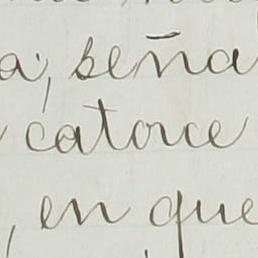 a; seña
catorce
, en que